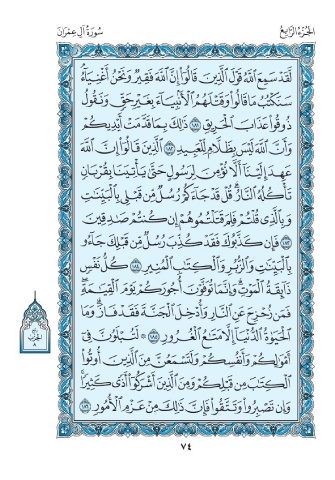 الجزء الرابع
سورة آل عمران
لَّقَدْ سَمِعَ ٱللَّهُ قَوْلَ ٱلَّذِينَ قَالُوٓا۟ إِنَّ ٱللَّهَ فَقِيرٌ وَنَحْنُ أَغْنِيَآءُ
سَنَكْتُبُ مَا قَالُوا۟ وَقَتْلَهُمُ ٱلْأَنۢبِيَآءَ بِغَيْرِ حَقٍّ وَنَقُولُ
ذُوقُوا۟ عَذَابَ ٱلْحَرِيقِ ١٨١ ذَٰلِكَ بِمَا قَدَّمَتْ أَيْدِيكُمْ
وَأَنَّ ٱللَّهَ لَيْسَ بِظَلَّامٍ لِّلْعَبِيدِ ١٨٢ ٱلَّذِينَ قَالُوٓا۟ إِنَّ ٱللَّهَ
عَهِدَ إِلَيْنَآ أَلَّا نُؤْمِنَ لِرَسُولٍ حَتَّىٰ يَأْتِيَنَا بِقُرْبَانٍ
تَأْكُلُهُ ٱلنَّارُ قُلْ قَدْ جَآءَكُمْ رُسُلٌ مِّن قَبْلِى بِٱلْبَيِّنَٰتِ
وَبِٱلَّذِى قُلْتُمْ فَلِمَ قَتَلْتُمُوهُمْ إِن كُنتُمْ صَٰدِقِينَ
١٨٣ فَإِن كَذَّبُوكَ فَقَدْ كُذِّبَ رُسُلٌ مِّن قَبْلِكَ جَآءُو
بِٱلْبَيِّنَٰتِ وَٱلزُّبُرِ وَٱلْكِتَٰبِ ٱلْمُنِيرِ ١٨٤ كُلُّ نَفْسٍ
ذَآئِقَةُ ٱلْمَوْتِ وَإِنَّمَا تُوَفَّوْنَ أُجُورَكُمْ يَوْمَ ٱلْقِيَٰمَةِ
فَمَن زُحْزِحَ عَنِ ٱلنَّارِ وَأُدْخِلَ ٱلْجَنَّةَ فَقَدْ فَازَ وَمَا
ٱلْحَيَوٰةُ ٱلدُّنْيَآ إِلَّا مَتَٰعُ ٱلْغُرُورِ ١٨٥ ۞ لَتُبْلَوُنَّ فِىٓ
أَمْوَٰلِكُمْ وَأَنفُسِكُمْ وَلَتَسْمَعُنَّ مِنَ ٱلَّذِينَ أُوتُوا۟
ٱلْكِتَٰبَ مِن قَبْلِكُمْ وَمِنَ ٱلَّذِينَ أَشْرَكُوٓا۟ أَذًى كَثِيرًا
وَإِن تَصْبِرُوا۟ وَتَتَّقُوا۟ فَإِنَّ ذَٰلِكَ مِنْ عَزْمِ ٱلْأُمُورِ ١٨٦
الحزب
٨
٧٤